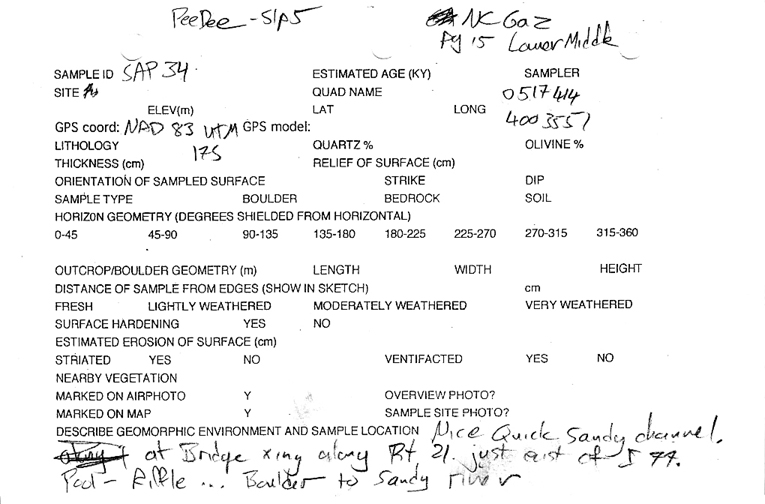 PeeDee - S1p5
NC Gaz
Pg 15 Lower Middle
SAMPLE ID SAP 34 ESTIMATED AGE (KY) SAMPLER
SITE QUAD NAME 0517414
ELEV(m) LAT LONG 4003551
GPS coord: NAD 83 UTM GPS model:
LITHOLOGY 175 QUARTZ % OLIVINE %
THICKNESS (cm) RELIEF OF SURFACE (cm)
ORIENTATION OF SAMPLED SURFACE STRIKE DIP
SAMPLE TYPE BOULDER BEDROCK SOIL
HORIZON GEOMETRY (DEGREES SHIELDED FROM HORIZONTAL)
0-45 45-90 90-135 135-180 180-225 225-270 270-315 315-360
OUTCROP/BOULDER GEOMETRY (m) LENGTH WIDTH HEIGHT
DISTANCE OF SAMPLE FROM EDGES (SHOW IN SKETCH) cm
FRESH LIGHTLY WEATHERED MODERATELY WEATHERED VERY WEATHERED
SURFACE HARDENING YES NO
ESTIMATED EROSION OF SURFACE (cm)
STRIATED YES NO VENTIFACTED YES NO
NEARBY VEGETATION
MARKED ON AIRPHOTO Y OVERVIEW PHOTO?
MARKED ON MAP Y SAMPLE SITE PHOTO?
DESCRIBE GEOMORPHIC ENVIRONMENT AND SAMPLE LOCATION Nice Quick Sandy channel.
at Bridge xing along Rt 21. just east of I 77.
Pool - Riffle ... Boulder to Sandy river